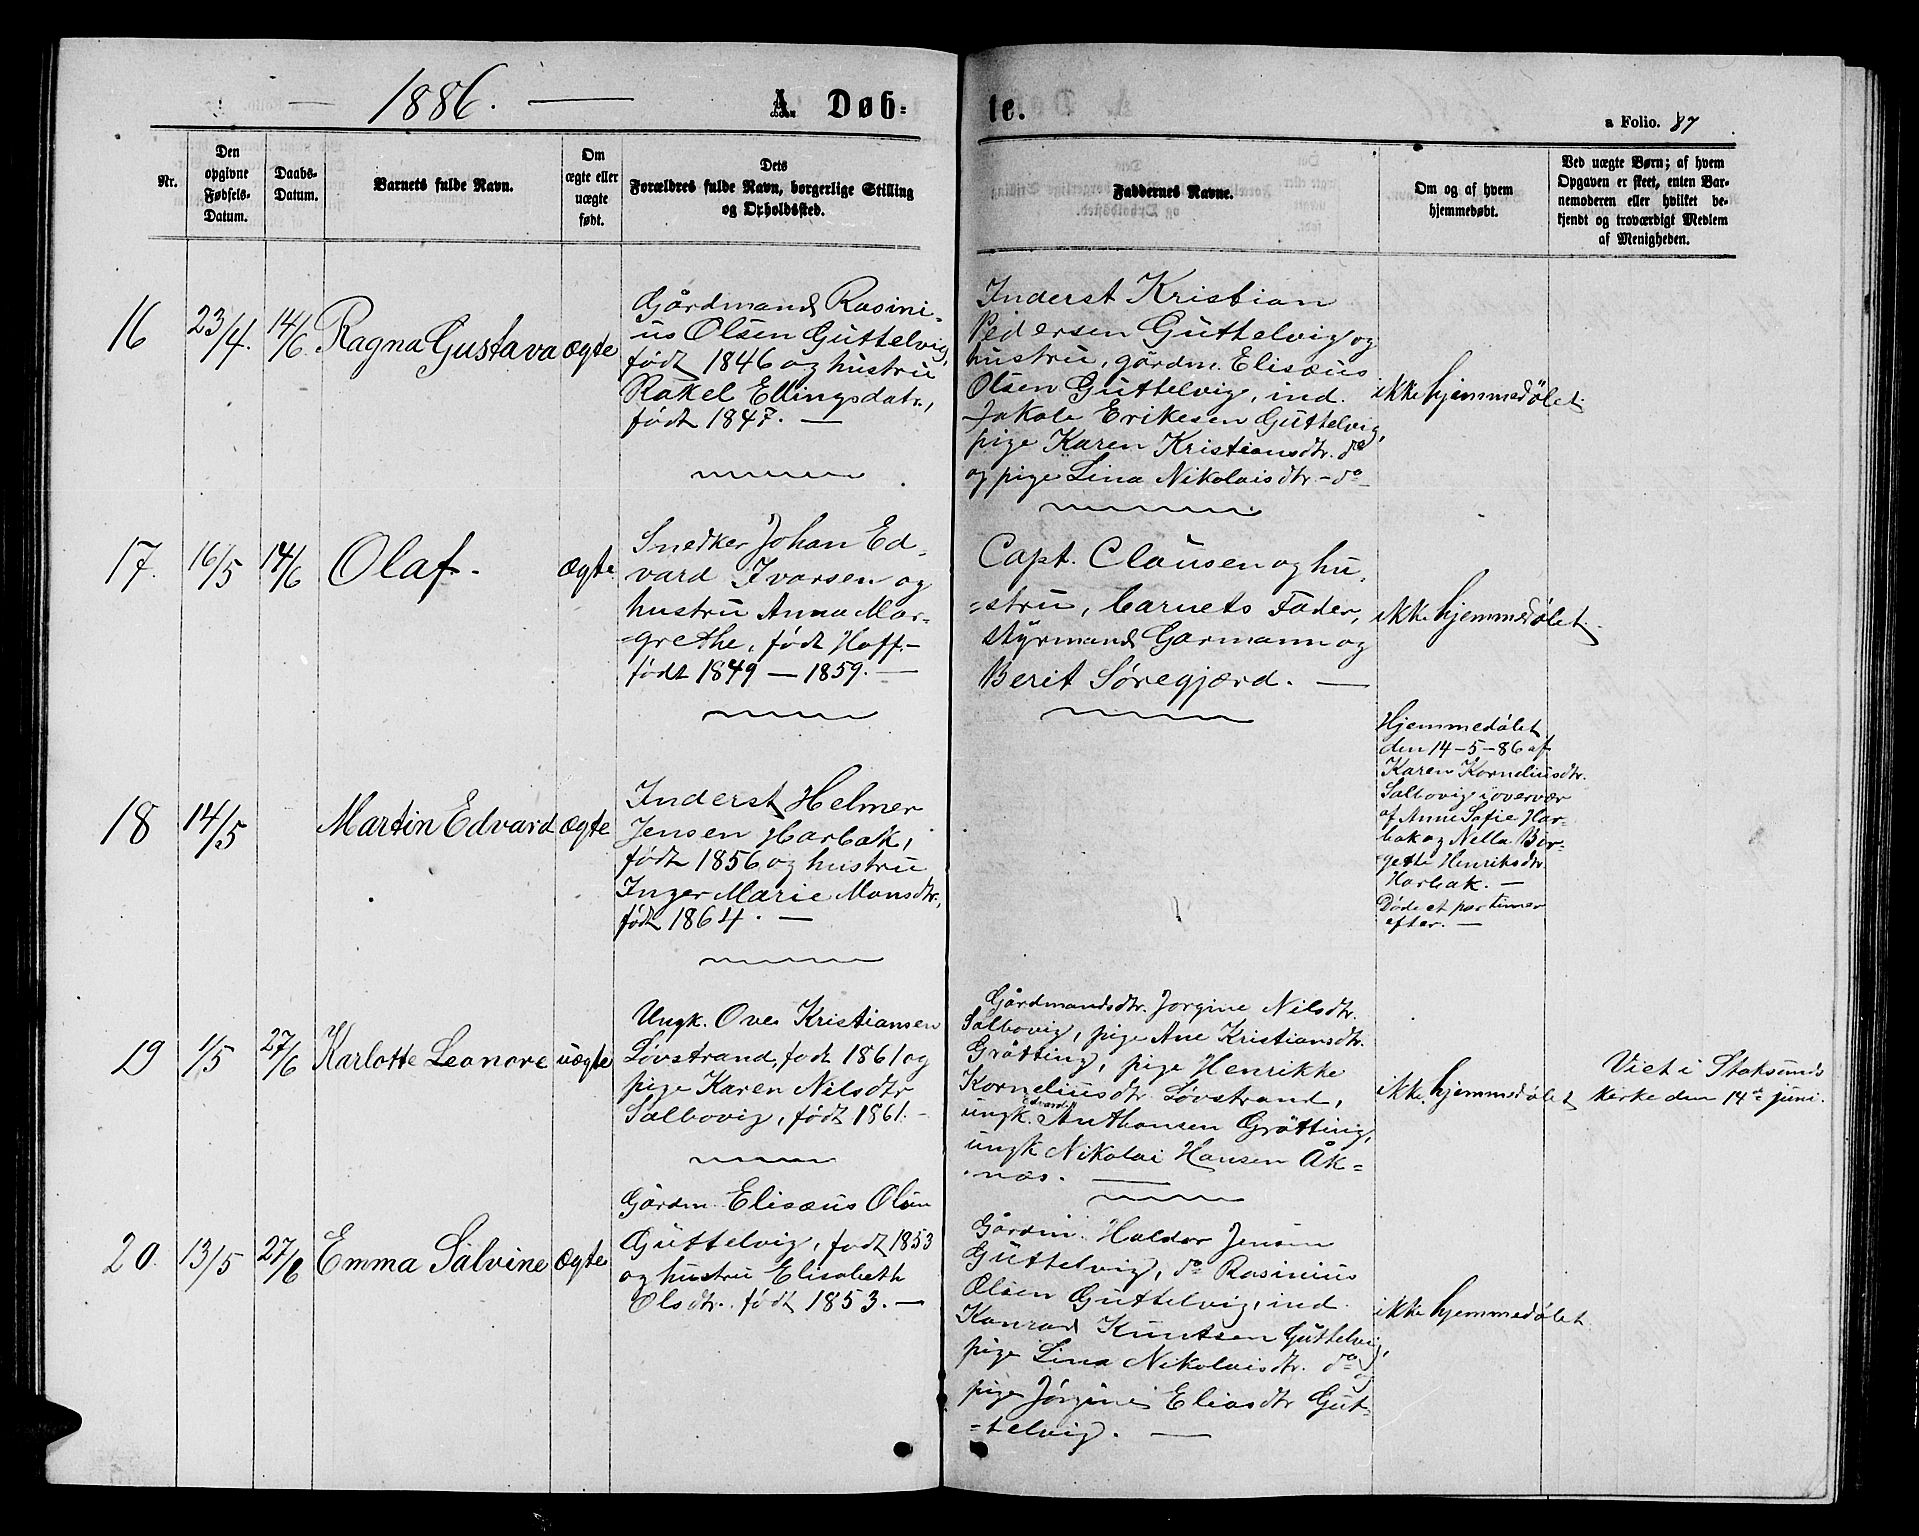 1886.
A. Døb-
te.
a Folio. 87
Nr.
Den
opgivne
Fødsels-
Datum.
Daabs-
Datum.
Barnets fulde Navn.
Om
ægte eller
uægte
født.
Dets
Forældres fulde Navn, borgerlige Stilling
og Opholdssted.
Faddernes Navne.
Om og af hvem
hjemmedøbt.
Ved uægte Børn; af hvem
Opgaven er skeet, enten Bar-
nemoderen eller hvilket be-
kjendt og troværdigt Medlem
af Menigheden.
16
23/4.
14/6
Ragna Gustava
ægte
Gårdmand Rasini-
us Olsen Guttelvig,
født 1846 og hustru
Rakel Ellingsdatr.,
født 1847. —
Inderst Kristian
Pedersen Guttelvig og
hustru, gårdm. Elisæus
Olsen Guttelvig, ind.
Jakob Erikesen Guttelvig,
pige Karen Kristiansdtr. do
og pige Lina Nikolaisdtr - do
ikke hjemmedøbt.
17.
16/5
14/6
Olaf.
ægte
Snedker Johan Ed-
vard Ivarsen og
hustru Anna Mar-
-grethe, født Hoff.-
født 1849 — 1859. —
Capt. Clausen og hu-
-stru, barnets Fader,
styrmand Garmann og
Berit Søregjærd. —
ikke hjemmedøbt.
18
14/5
Martin Edvard
ægte
Inderst Helmer
Jensen Harbak,
født 1856 og hustru
Inger Marie Monsdtr.,
født 1864. —
Hjemmedøbt
den 14-5-86 af
Karen Korneliusdtr.
Salbovig i overvær
af Anne Sofie Har-
bak og Nella Bør-
gette Henriksdtr.
Harbak. —
Døde et par timer
efter. —
19
1/5
27/6
Karlotte Leonore
uægte
Ungk. Ove Kristiansen
Løvstrand, født 1861 og
pige Karen Nilsdtr
Salbovig, født 1861. -
Gårdmandsdtr. Jorgine Nilsdtr.
Salbovig, pige Ane Kristiansdtr.
Grøtting, pige Henrikke
Korneliusdtr. Løvstrand,
ungk. Edvard Anthonsen Grøtting,
ungk Nikolai Hansen Åk-
næs. —
ikke hjemmedøbt
Viet i Stoksunds
kirke den 14de juni.
20.
13/5
27/6
Emma Salvine
ægte
Gårdm. Elisæus Olsen
Guttelvig, født 1853
og hustru Elisabeth
Olsdtr. født 1853. —
Gårdm. Haldor Jensen
Guttelvig, do Rasinius
Olsen Guttelvig, ind.
Konrad Kuntsen Guttelvig,
pige Lina Nikolaisdtr. do og
pige Jørgine Eliasdtr Gut-
-telvig. —
ikke hjemmedøbt.